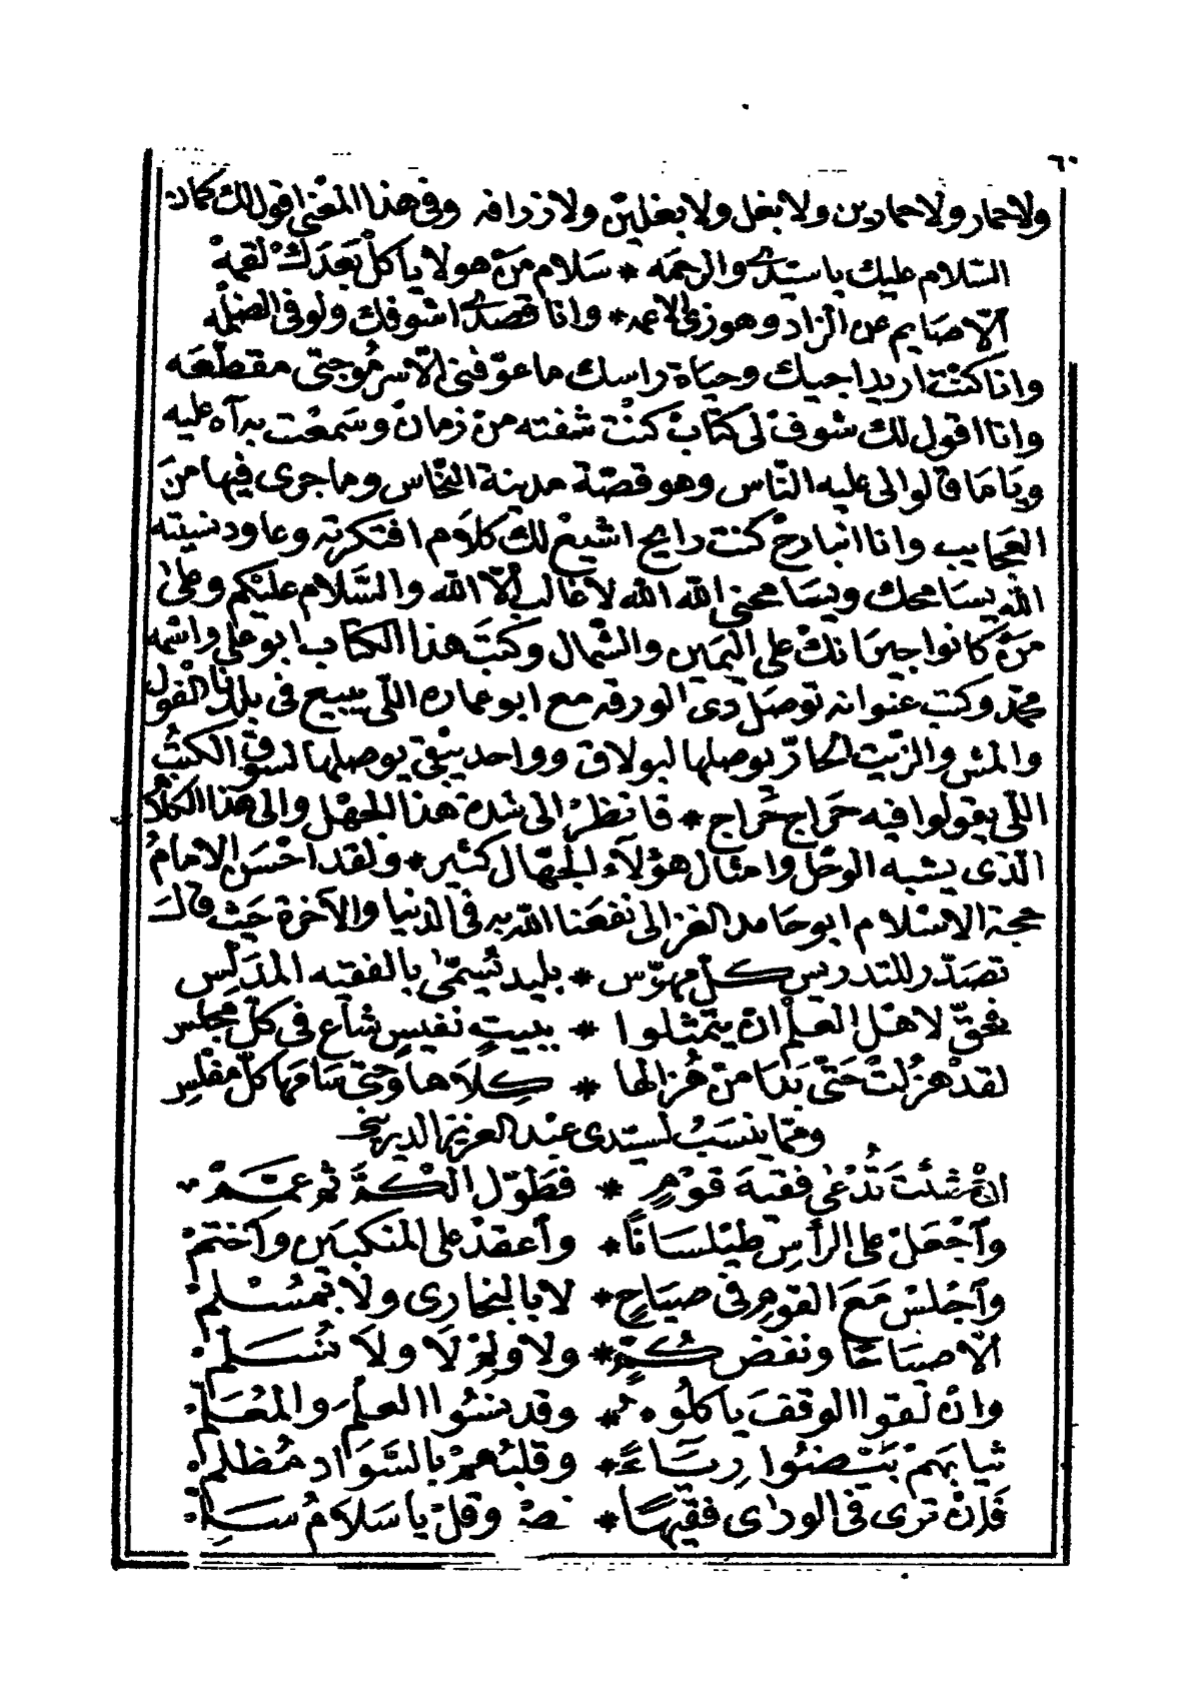 ٦٠
ولا حمار ولا حمارين ولا بغل ولا بغلين ولا زرافه وفى هذا المعنى اقول لك كمان
السّلام عليك ياسيّدى والرحمه * سَلام مَنْ هو لا ياكلْ بَعدَكْ لقمهْ
الّا صَايم عن الزاد وهو زىّ الاعمه * وانا قصدى اشوفك ولو فى الضلمه
وانا كنْت اريد اجيك وحيَاة راسك ما عوّقنى الّا سرمُوجتى مقطّعه
وانا اقول لك شوفْ لى كتابْ كنْت شفته منْ زمانْ وسَمعْت بدآه عليه
ويَا مَا قالوا لى عليه النّاس وهو قصّة مدينة النحّاس وما جرى فيها منَ
العَجايب وانا انبارحْ كنت رايح اشيعْ لك كلاَم افتكرته وعاود نسيته
اللّه يسَامحك ويسَامحنى اللّه اللّه لا غالب الّا اللّه والسّلام عليْكم وعلى
مَنْ كانوا جيرَانكْ على اليمَين والشّمال وكتبَ هذا الكتاب ابو على واسْمه
محمّد وكتب عنوانه توصَلْ دى الورقه مع ابو عماره اللّى يبيع فى بلدنا الفول
والمش والزيْت الحارّ يوصلها لبولاق وواحد يبْقى يوصلها لسوق الكتبْ
اللّى يقولوا فيه حَراج حَراج * فانظرْ الى شدة هذا الجهْل والى هذا الكلام
الّذى يشبه الوحْل وامثال هؤلآء الجهّال كثير * ولقد احْسَن الامامُ
حجة الاسْلام ابو حَامد الغزالى نفعَنا اللّه به فى الدنيا والآخرة حَيث قالَ
تصَدّر للتدريس كلّ مهوّس * بليد تُسمّى بالفقيه المدَلِّس
فحقّ لاهْل العلْم انْ يتمثلوا * ببيتٍ نفيسٍ شاع فى كلّ مجلس
لقدْ هزُلتْ حَتّى بَدَا منْ هُزالها * كِلَاها وحَتّى سَامَها كلّ مفْلسِ
وممّا ينسَبُ لسيّدى عبْد العزيز الديرينى
انْ شئتَ تُدْعى فقيهَ قوْمٍ * فطَوّل الْكمَّ ثم عمّمْ
وآجْعَلْ على الرأسِ طيْلسَانًا * وآعقدْ على المنكبَين وآختمْ
وآجْلسْ مَعَ القوم فى صيَاحٍ * لا بالبخارى ولا بمُسْلمْ
الّا صيَاحًا ونفض كُمٍّ * ولا ولِمْ لَا ولاَ نُسَلمْ
وانْ لقوا الوقفَ ياكلُوه * وقد نسُوا العلْمَ والمُعَلّمْ
ثيابهمْ بَيّضُوا رِيَاءً * وقلبُهمْ بالسَّوَاد مُظلمْ
فَانْ ترى فى الورى فقيهًا * صهْ وقلْ يا سَلاَمُ سَلّمْ